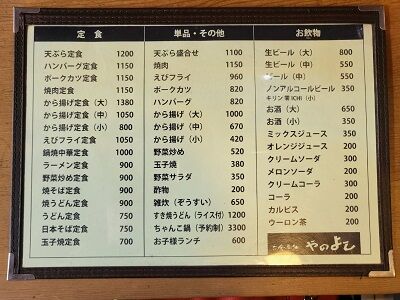 定 食
天ぷら定食 1200
ハンバーグ定食 1150
ポークカツ定食 1150
焼肉定食 1150
から揚げ定食（大） 1380
から揚げ定食（中） 1050
から揚げ定食（小） 800
えびフライ定食 1050
鍋焼中華定食 1000
ラーメン定食 900
野菜炒め定食 900
焼そば定食 900
焼うどん定食 900
うどん定食 750
日本そば定食 750
玉子焼定食 700
単品・その他
天ぷら盛合せ 1100
焼肉 1000
えびフライ 960
ポークカツ 820
ハンバーグ 820
から揚げ（大） 1000
から揚げ（中） 670
から揚げ（小） 420
野菜炒め 520
玉子焼 380
野菜サラダ 350
酢物 200
雑炊（ぞうすい） 650
すき焼うどん（ライス付） 1200
ちゃんこ鍋（予約制） 3300
お子様ランチ 600
お飲物
生ビール（大） 800
生ビール（中） 550
ビール（中） 550
ノンアルコールビール 350
キリン零ICHI（小）
お酒（大） 650
お酒（小） 350
ミックスジュース 350
オレンジジュース 200
クリームソーダ 300
メロンソーダ 200
クリームコーラ 300
コーラ 200
カルピス 200
ウーロン茶 200
やのよし